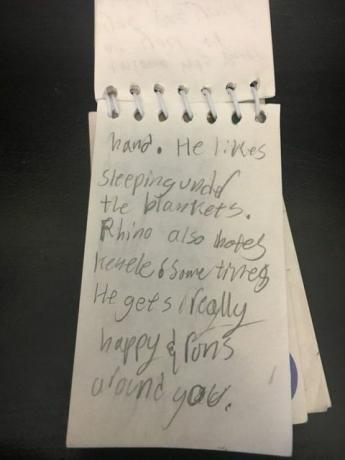 hand. He likes
sleeping undr
the blankets.
Rhino also hates
kenele & some times
He gets really
happy & rons
around you.